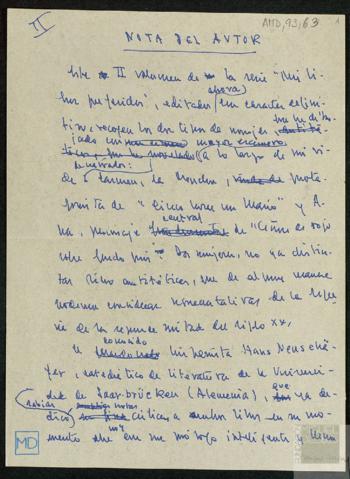 II
AMD, 93, 63
1
NOTA DEL AUTOR
Este II volumen de la serie "Mis li-
bros preferidos", editados ahora con caracter defini-
tivo, recogen los dos tipos de mujer,
a lo largo de mi vi-
da Carmen, la Menchu, prota-
gonista de "Cinco horas con Mario" y A-
na, personaje central de "Señora de rojo
sobre fondo gris". Dos mujeres, no ya distin-
tas sino antitéticas, que de alguna manera
podemos considerar representativas de la
de la segunda mitad del siglo XX,
El conocido hispanista Hans Neuschä-
fer, catedrático de literatura de la Universi-
dad de Saarbrücken (Alemania), que ya de-
dicó sabias críticas a ambos libros en su mo-
mento abre con un prólogo inteligente y
MD